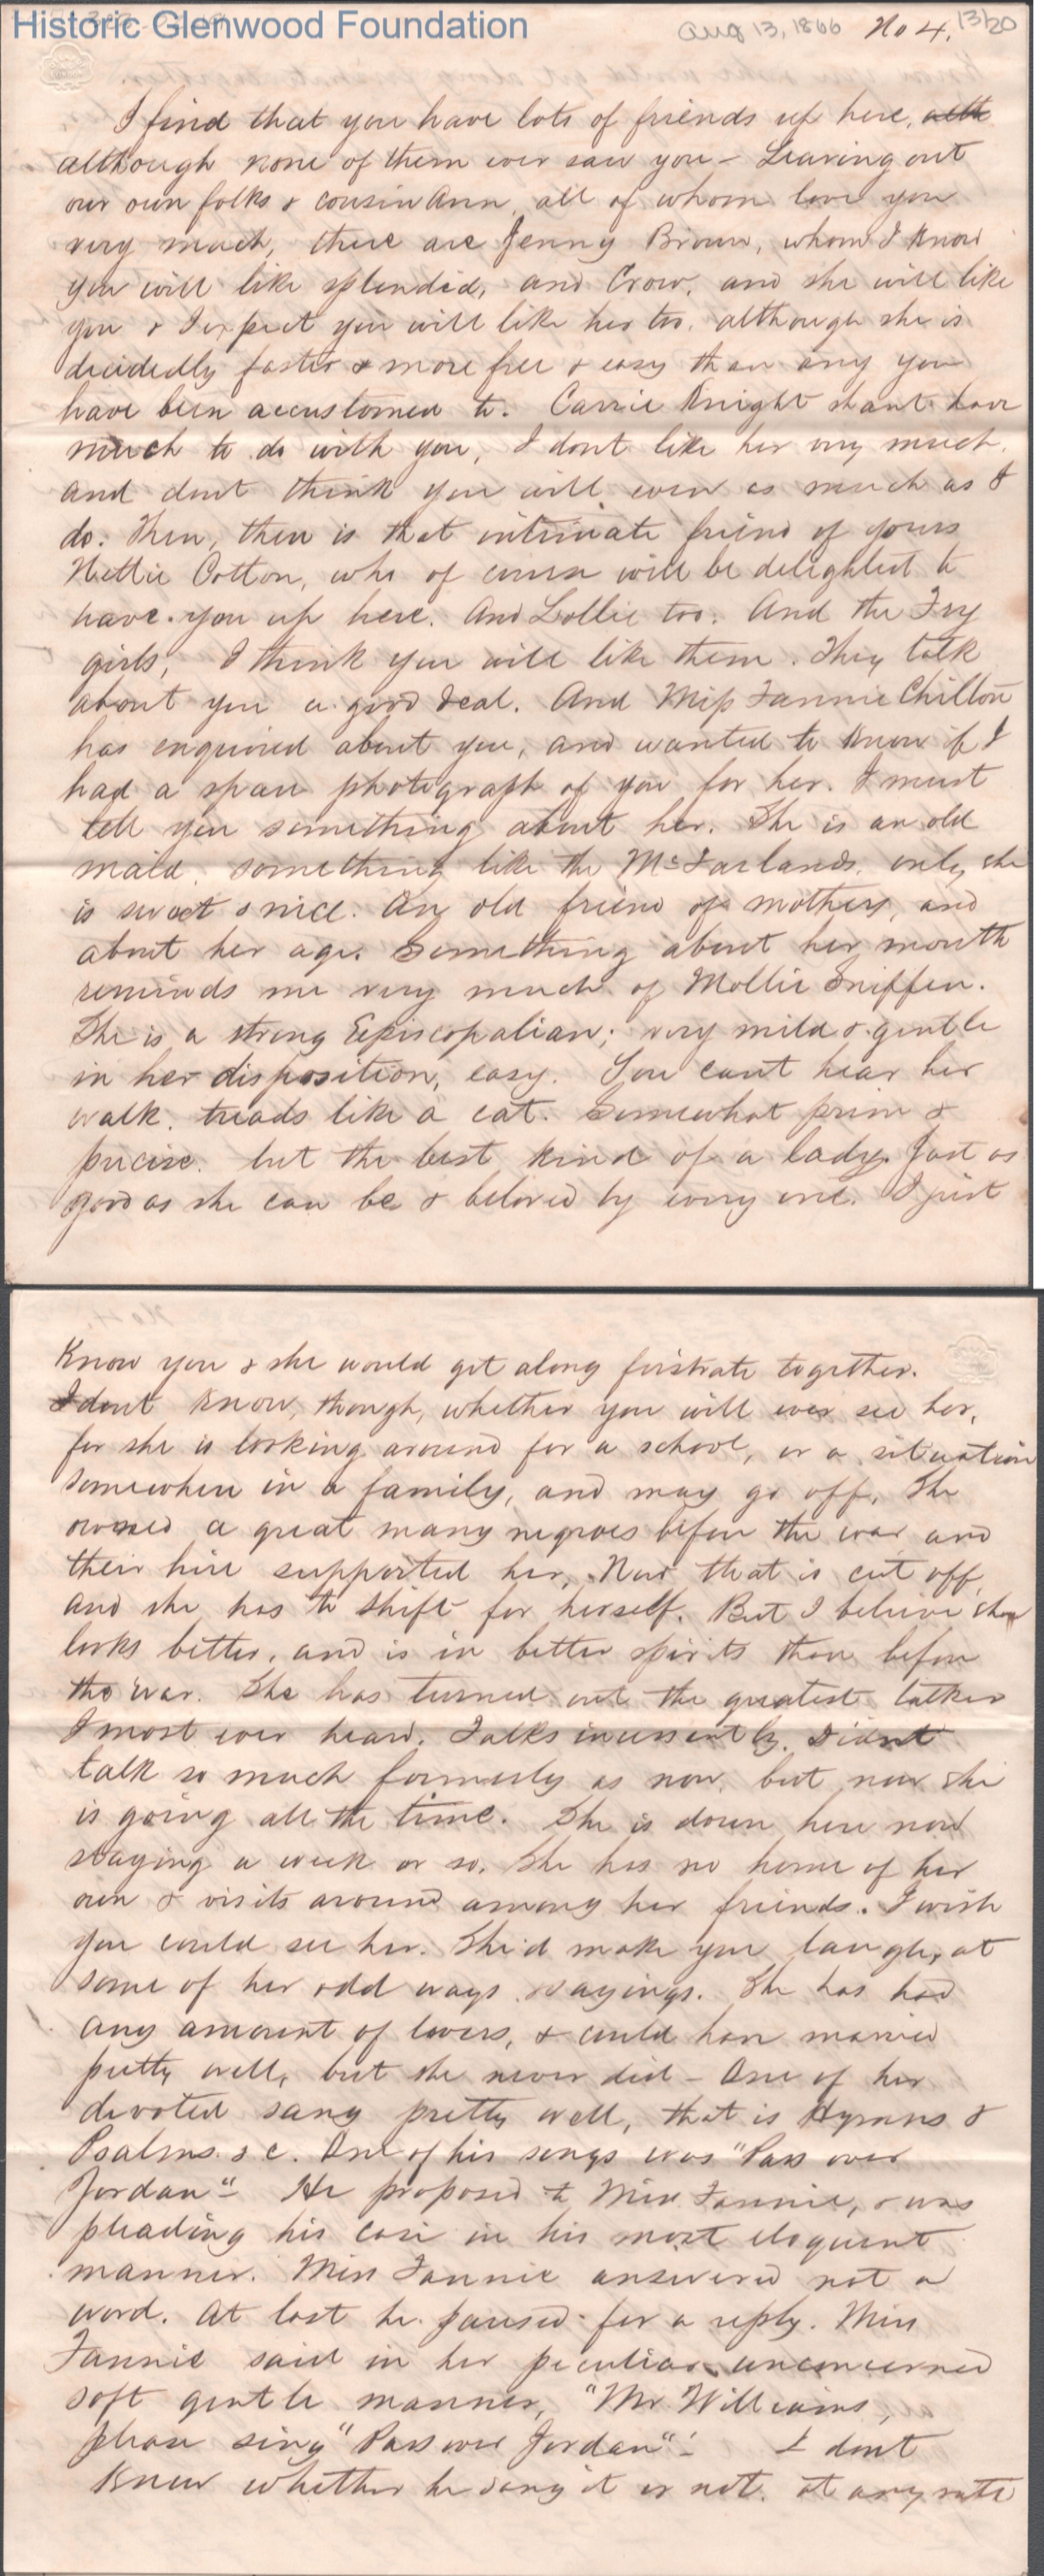 Historic Glenwood Foundation
Aug 13, 1866 No 4. 13/20
I find that you have lots of friends up here, alth
although none of them ever saw you - Leaving out
our own folks & cousin Ann, all of whom love you
very much, there are Jenny Brown, whom I know
you will like splendid, and Crow, and she will like
you & I expect you will like her too, although she is
decidedly faster & more free & easy than any you
have been accustomed to. Carrie Knight shant have
much to do with you, I dont like her very much,
and dont think you will even as much as I
do. Then, there is that intimate friend of yours
Nettie Cotton, who of course will be delighted to
have you up here. And Lollie too. And the Ivy
girls, I think you will like them. They talk
about you a good deal. And Miss Fannie Chilton
has enquired about you, and wanted to know if I
had a spare photograph of you for her. I must
tell you something about her. She is an old
maid, something like the McFarlands, only she
is sweet & nice. An old friend of mothers, and
about her age. Something about her mouth
reminds me very much of Mollie Sniffen.
She is a strong Episcopalian; very mild & gentle
in her disposition, easy. You cant hear her
walk, treads like a cat. Somewhat prim &
precise, but the best kind of a lady. Just as
good as she can be & beloved by every one. I just
Know you & she would get along firstrate together.
I dont know, though, whether you will ever see her,
for she is looking around for a school, or a situation
somewhere in a family, and may go off. She
owned a great many negroes before the war and
their hire supported her, Now that is cut off,
and she has to shift for herself. But I believe she
looks better, and is in better spirits than before
the war. She has turned out the greatest talker
I most ever heard. Talks incessantly. Didnt
talk so much formerly as now, but now she
is going all the time. She is down here now
staying a week or so. She has no home of her
own & visits around among her friends. I wish
you could see her. She'd make you laugh, at
some of her odd ways sayings. She has had
any amount of lovers, & could have married
pretty well, but she never did - One of her
devoted sang pretty well, that is Hymns &
Psalms &c. One of his songs was "Pass over
Jordan" - He proposed to Miss Fannie, & was
pleading his case in his most eloquent
manner. Miss Fannie answered not a
word. At last he paused for a reply. Miss
Fannie said in her peculiar unconcerned
soft gentle manner, "Mr. Williams,
please sing "Pass over Jordan" - I dont
know whether he sang it or not. at any rate